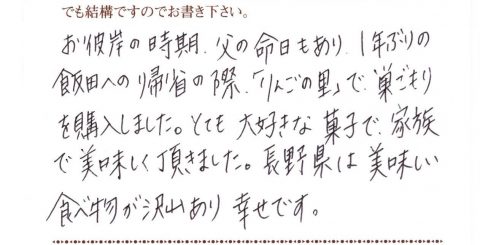 でも結構ですのでお書き下さい。
お彼岸の時期、父の命日もあり、1年ぶりの
飯田への帰省の際、「りんごの里」で、巣ごもり
を購入しました。とても大好きな菓子で、家族
で美味しく頂きました。長野県は美味しい
食べ物が沢山あり幸せです。